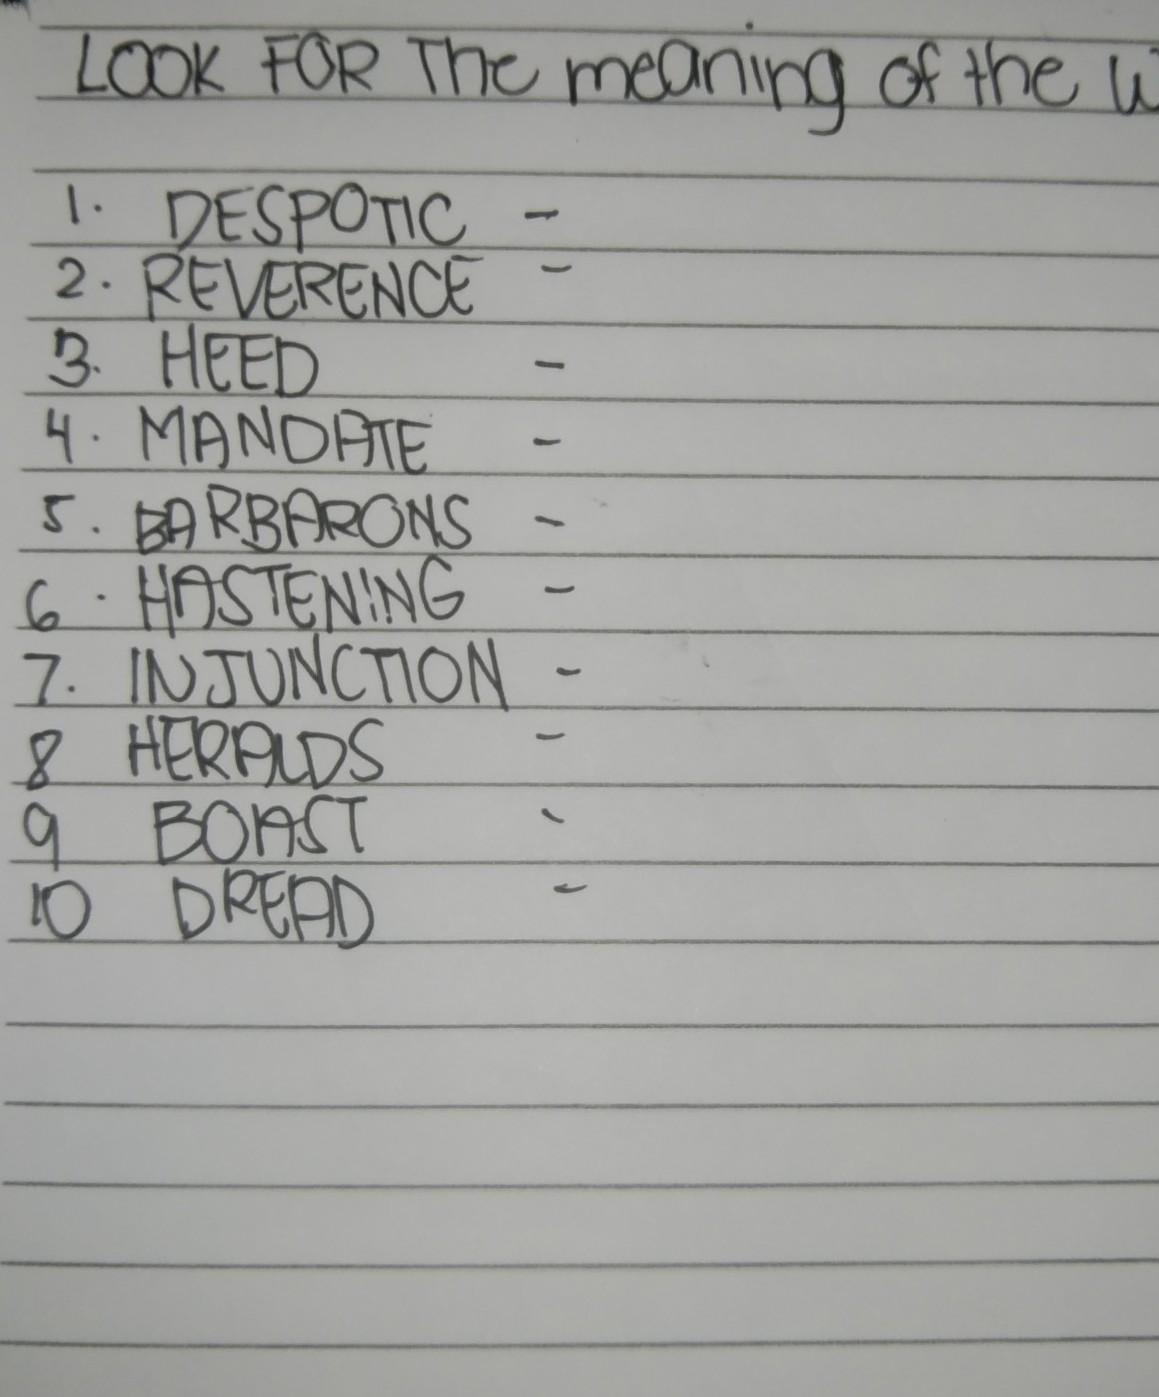 LOOK FOR The meaning of the
1. DESPOTIC -
2. REVERENCE -
3. HEED -
4. MANDATE -
5. BARBARONS -
6. HASTENING -
7. INJUNCTION -
8 HERALDS -
9 BOAST -
10 DREAD -